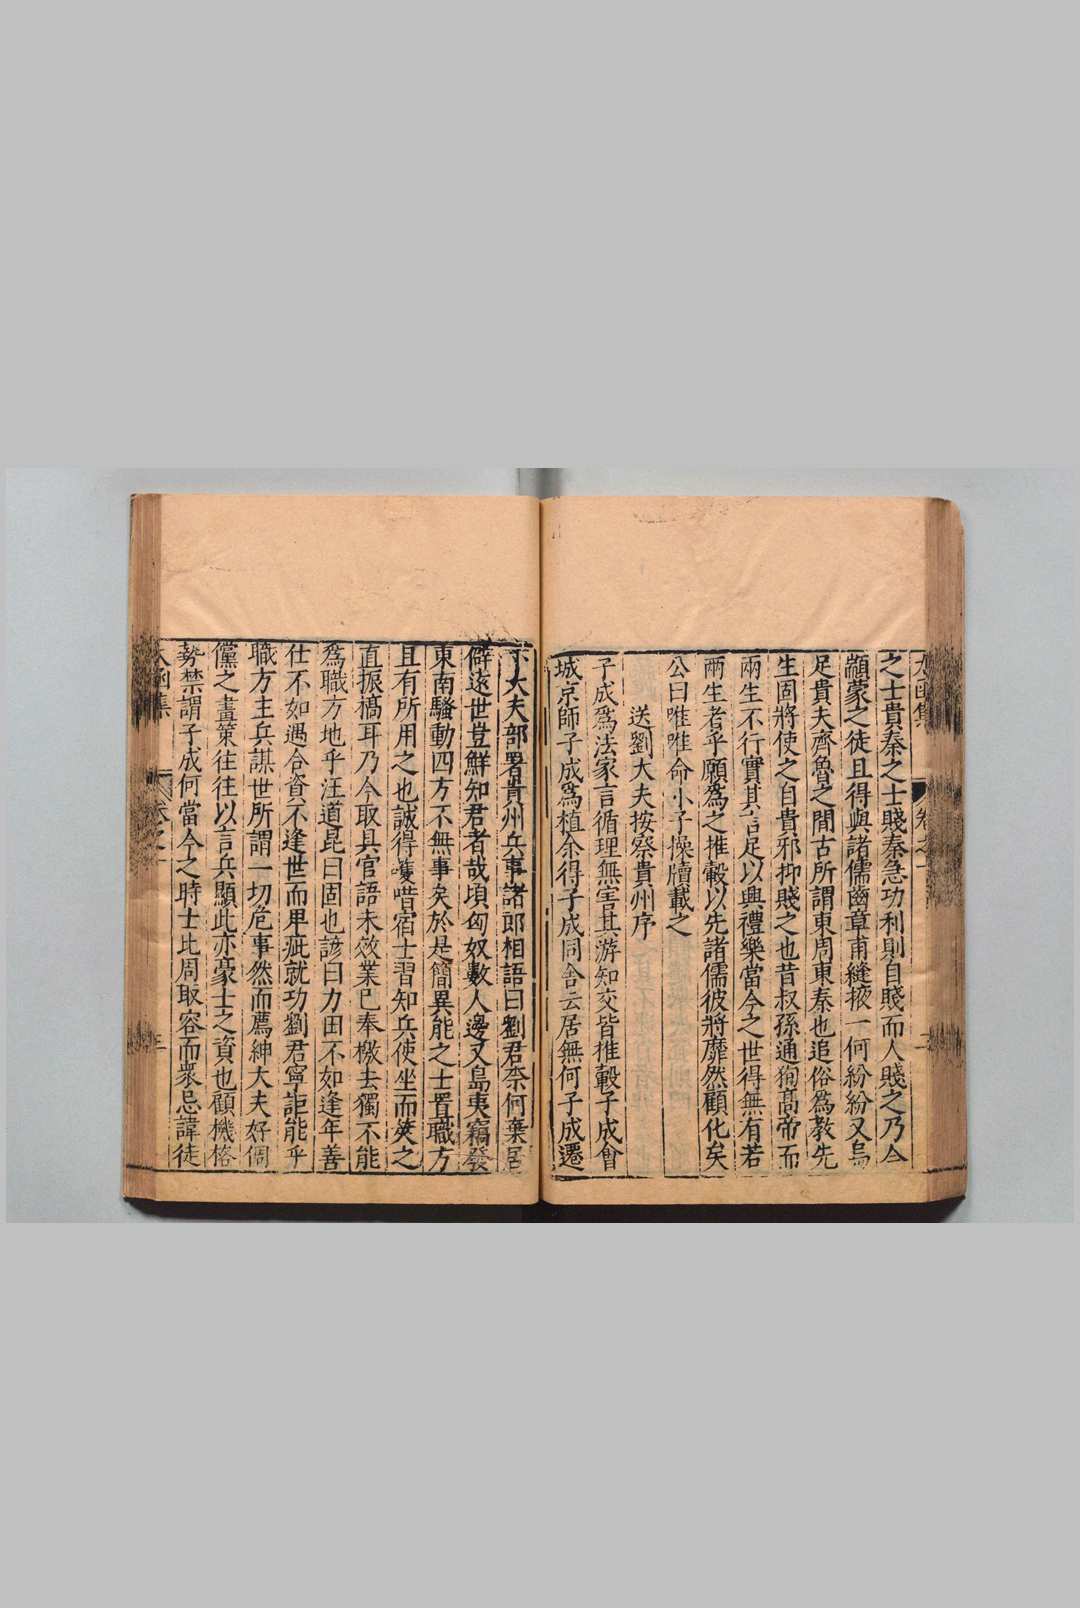 太函集
卷之一
之士貴秦之士賤秦急功利則自賤而人賤之乃今
顓蒙之徒且得與諸儒齒章甫縫掖一何紛紛又烏
足貴夫齊魯之間古所謂東周東秦也追俗為教先
生固將使之自貴邪抑賤之也昔叔孫通徇高帝而
兩生不行實其言足以興禮樂當今之世得無有若
兩生者乎願為之推轂以先諸儒彼將靡然顧化矣
公曰唯唯命小子操牘載之
送劉大夫按察貴州序
子成為法家言循理無害其游知交皆推轂子成會
城京師子成為植余得子成同舍云居無何子成遷
下大夫部署貴州兵事諸郎相語曰劉君奈何棄居
僻遠世豈鮮知君者哉頃匈奴數入邊又島夷竊發
東南騷動四方不無事矣於是簡異能之士置職方
且有所用之也誠得嚄唶宿士習知兵使坐而筴之
直振槁耳乃今取具官語未效業已奉檄去獨不能
為職方地乎汪道昆曰固也諺曰力田不如逢年善
仕不如遇合資不逢世而卑疵就功劉君寧詎能乎
職方主兵謀世所謂一切危事然而薦紳大夫好倜
儻之畫策往往以言兵顯此亦豪士之資也顧機格
勢禁謂子成何當今之時士比周取容而眾忌諱徒
太函集
卷之一
二